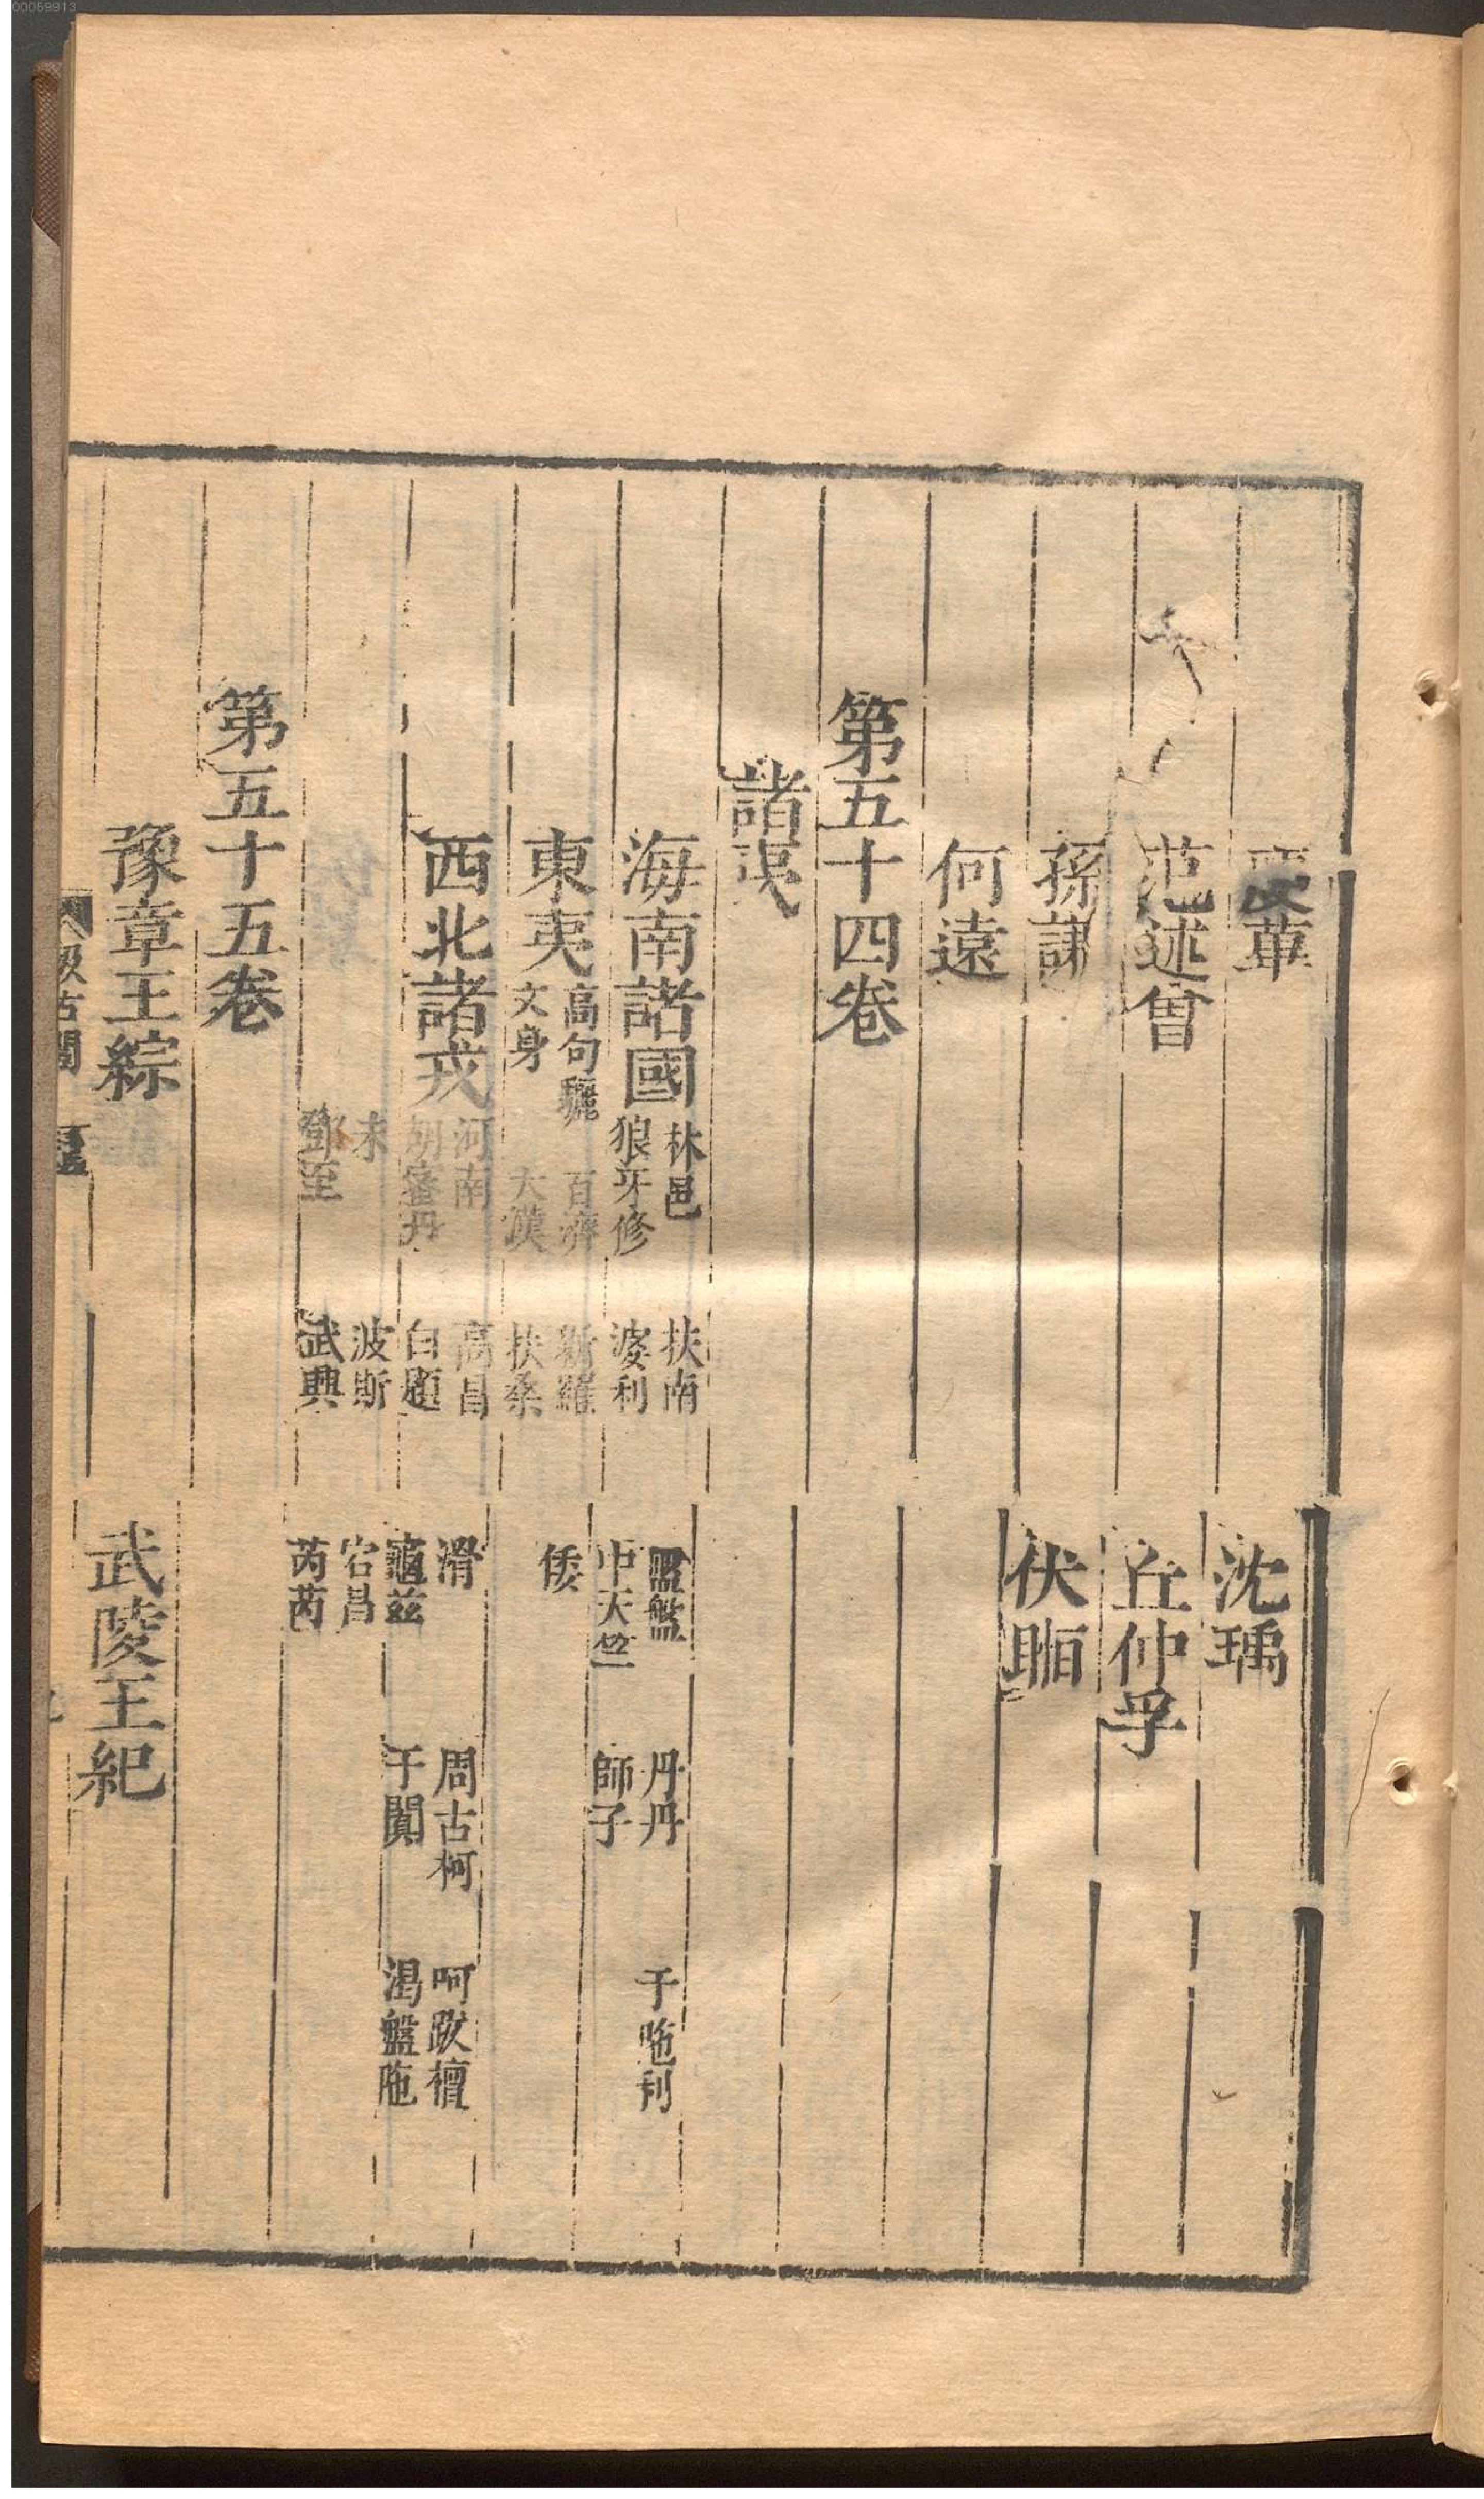 庾蓽 沈瑀
范述曾 丘仲孚
孫謙 伏暅
何遠
第五十四卷
諸夷
海南諸國 林邑 扶南 盤盤 丹丹 干陁利
狼牙修 婆利 中天竺 師子
東夷 高句驪 百濟 新羅 倭
文身 大漢 扶桑
西北諸戎 河南 高昌 滑 周古柯 呵跋檀
胡蜜丹 白題 龜兹 于闐 渴盤陁
末 波斯 宕昌
鄧至 武興 芮芮
第五十五卷
豫章王綜 武陵王紀
汲古閣
00059913